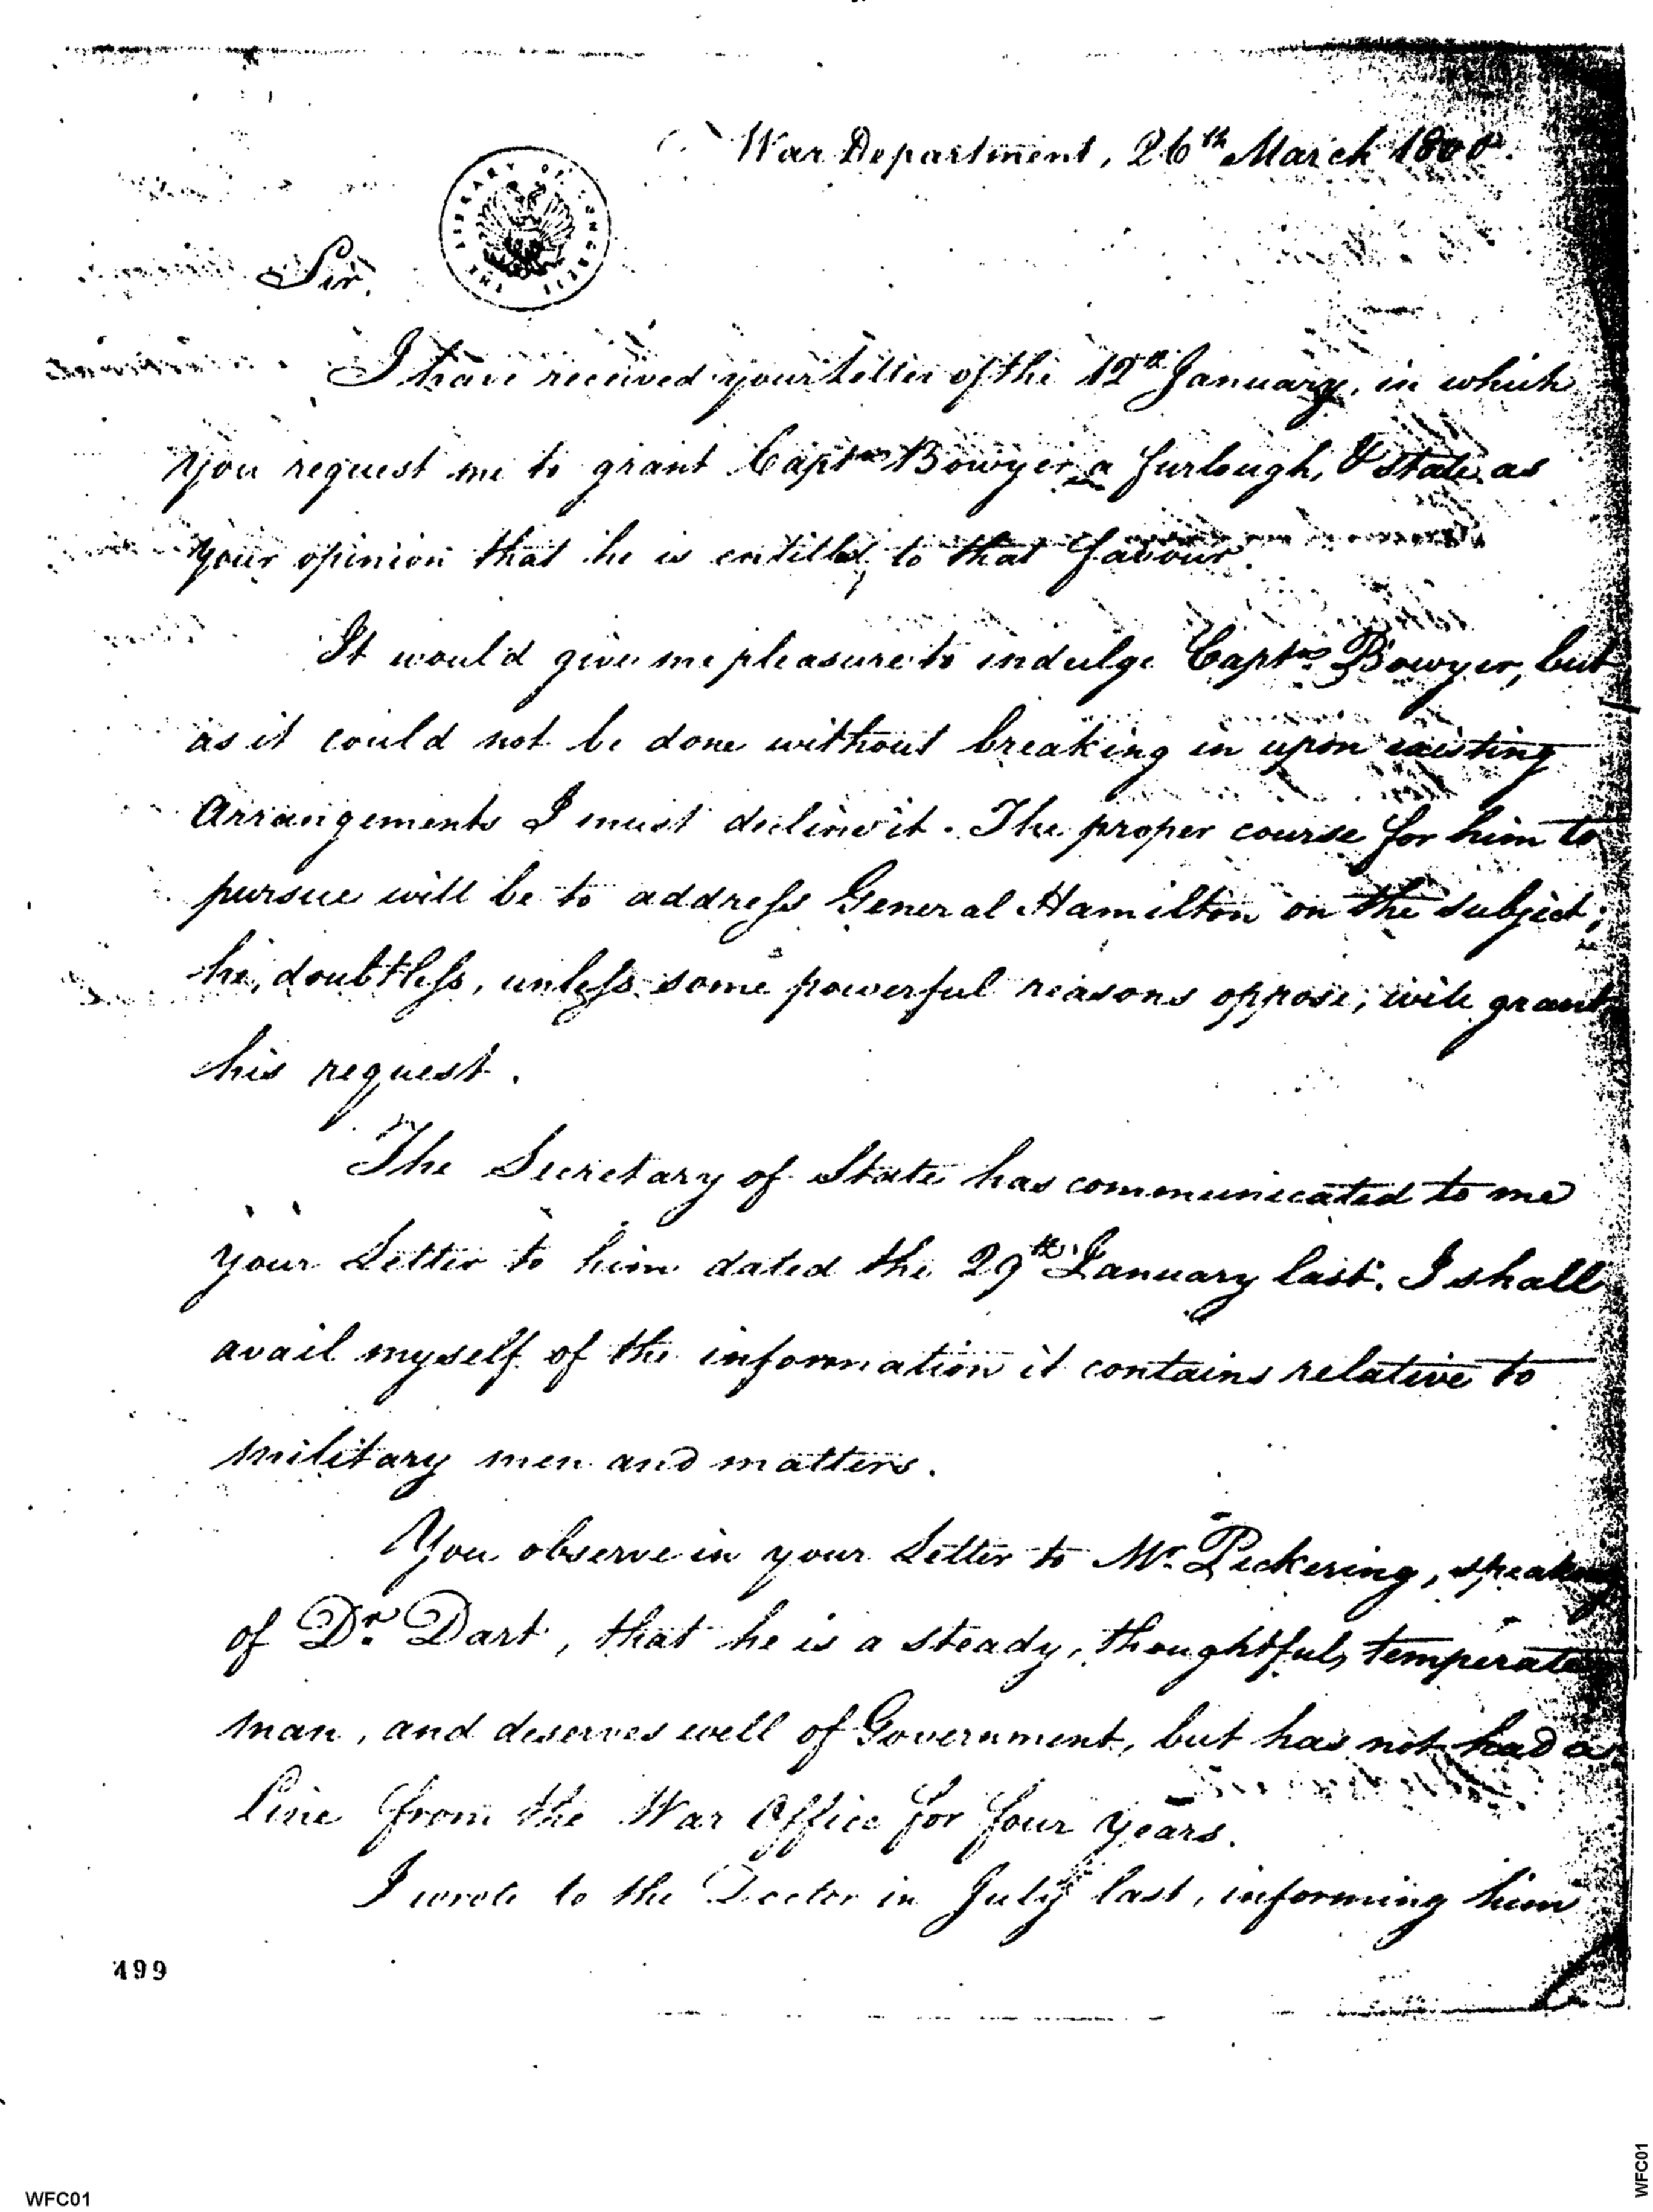 War Department, 26th March 1800.
THE LIBRARY OF CONGRESS
Sir,
I have received your Letter of the 12th January, in which
you request me to grant Captn Bowyer a furlough, & state as
your opinion that he is entitled to that favour.
It would give me pleasure to indulge Captn Bowyer, but
as it could not be done without breaking in upon existing
Arrangements I must decline it. The proper course for him to
pursue will be to address General Hamilton on the subject;
he, doubtless, unless some powerful reasons oppose, will grant
his request.
The Secretary of State has communicated to me
your Letter to him dated the 29th January last. I shall
avail myself of the information it contains relative to
military men and matters.
You observe in your Letter to Mr. Pickering, speaking
of Dr. Dart, that he is a steady, thoughtful, temperate
man, and deserves well of Government, but has not had a
line from the War Office for four years.
I wrote to the Doctor in July last, informing him
499
WFC01
WFC01